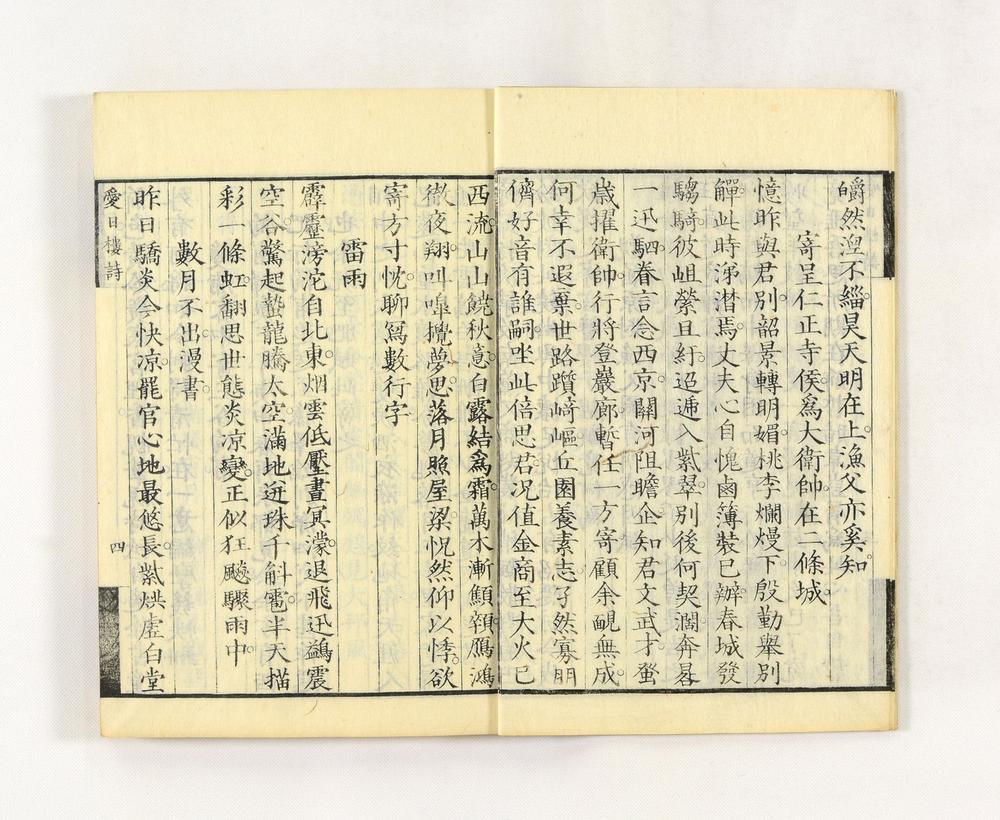 皭然涅不緇昊天明在上漁父亦奚知
寄呈仁正寺侯爲大衛帥在二條城
憶昨與君別韶景轉明媚桃李爛熳下殷勤舉別
觶此時涕潸焉丈夫心自愧鹵簿裝已辦春城發
騶騎彼岨縈且紆迢遞入紫翠別後何契濶奔晷
一迅駟眷言念西京關河阻瞻企知君文武才蚤
歲擢衛帥行將登巖廊暫任一方寄顧余覥無成
何幸不遐棄世路躓崎嶇丘園養素志孑然寡朋
儕好音有誰嗣坐此倍思君况值金商至大火已
西流山山饒秋意白露結爲霜萬木漸顦顇鴈鴻
徹夜翔叫嘷攪夢思落月照屋梁怳然仰以悸欲
寄方寸忱聊寫數行字
雷雨
霹靂滂沱自北東烟雲低壓晝冥濛退飛迅鷁震
空谷驚起蟄龍騰太空滿地迸珠千斛雹半天描
彩一條虹翻思世態炎凉變正似狂飈驟雨中
數月不出漫書
昨日驕炎今快凉罷官心地最悠長紫烘虛白堂
愛日樓詩
四